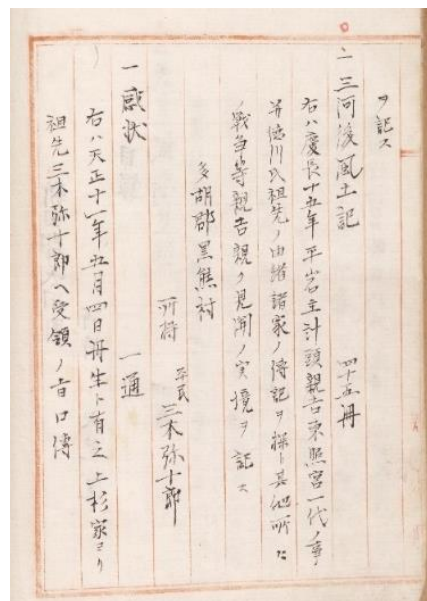 ヲ記ス
一三河後風土記　四十五冊
右ハ慶長十五年平岩主計頭親吉東照宮一代ノ事
并徳川氏祖先ノ由緒諸家ノ傳記ヲ探ト其他所々
戦争等親吉親ク見聞ノ実境ヲ記ス
多胡郡黒熊村
平民
所持　三木弥十郎
一感状　一通
右ハ天正十一年五月四日冊生ト有之上杉家ヨリ
祖先三木弥十郎ヘ受領ノ旨口傳